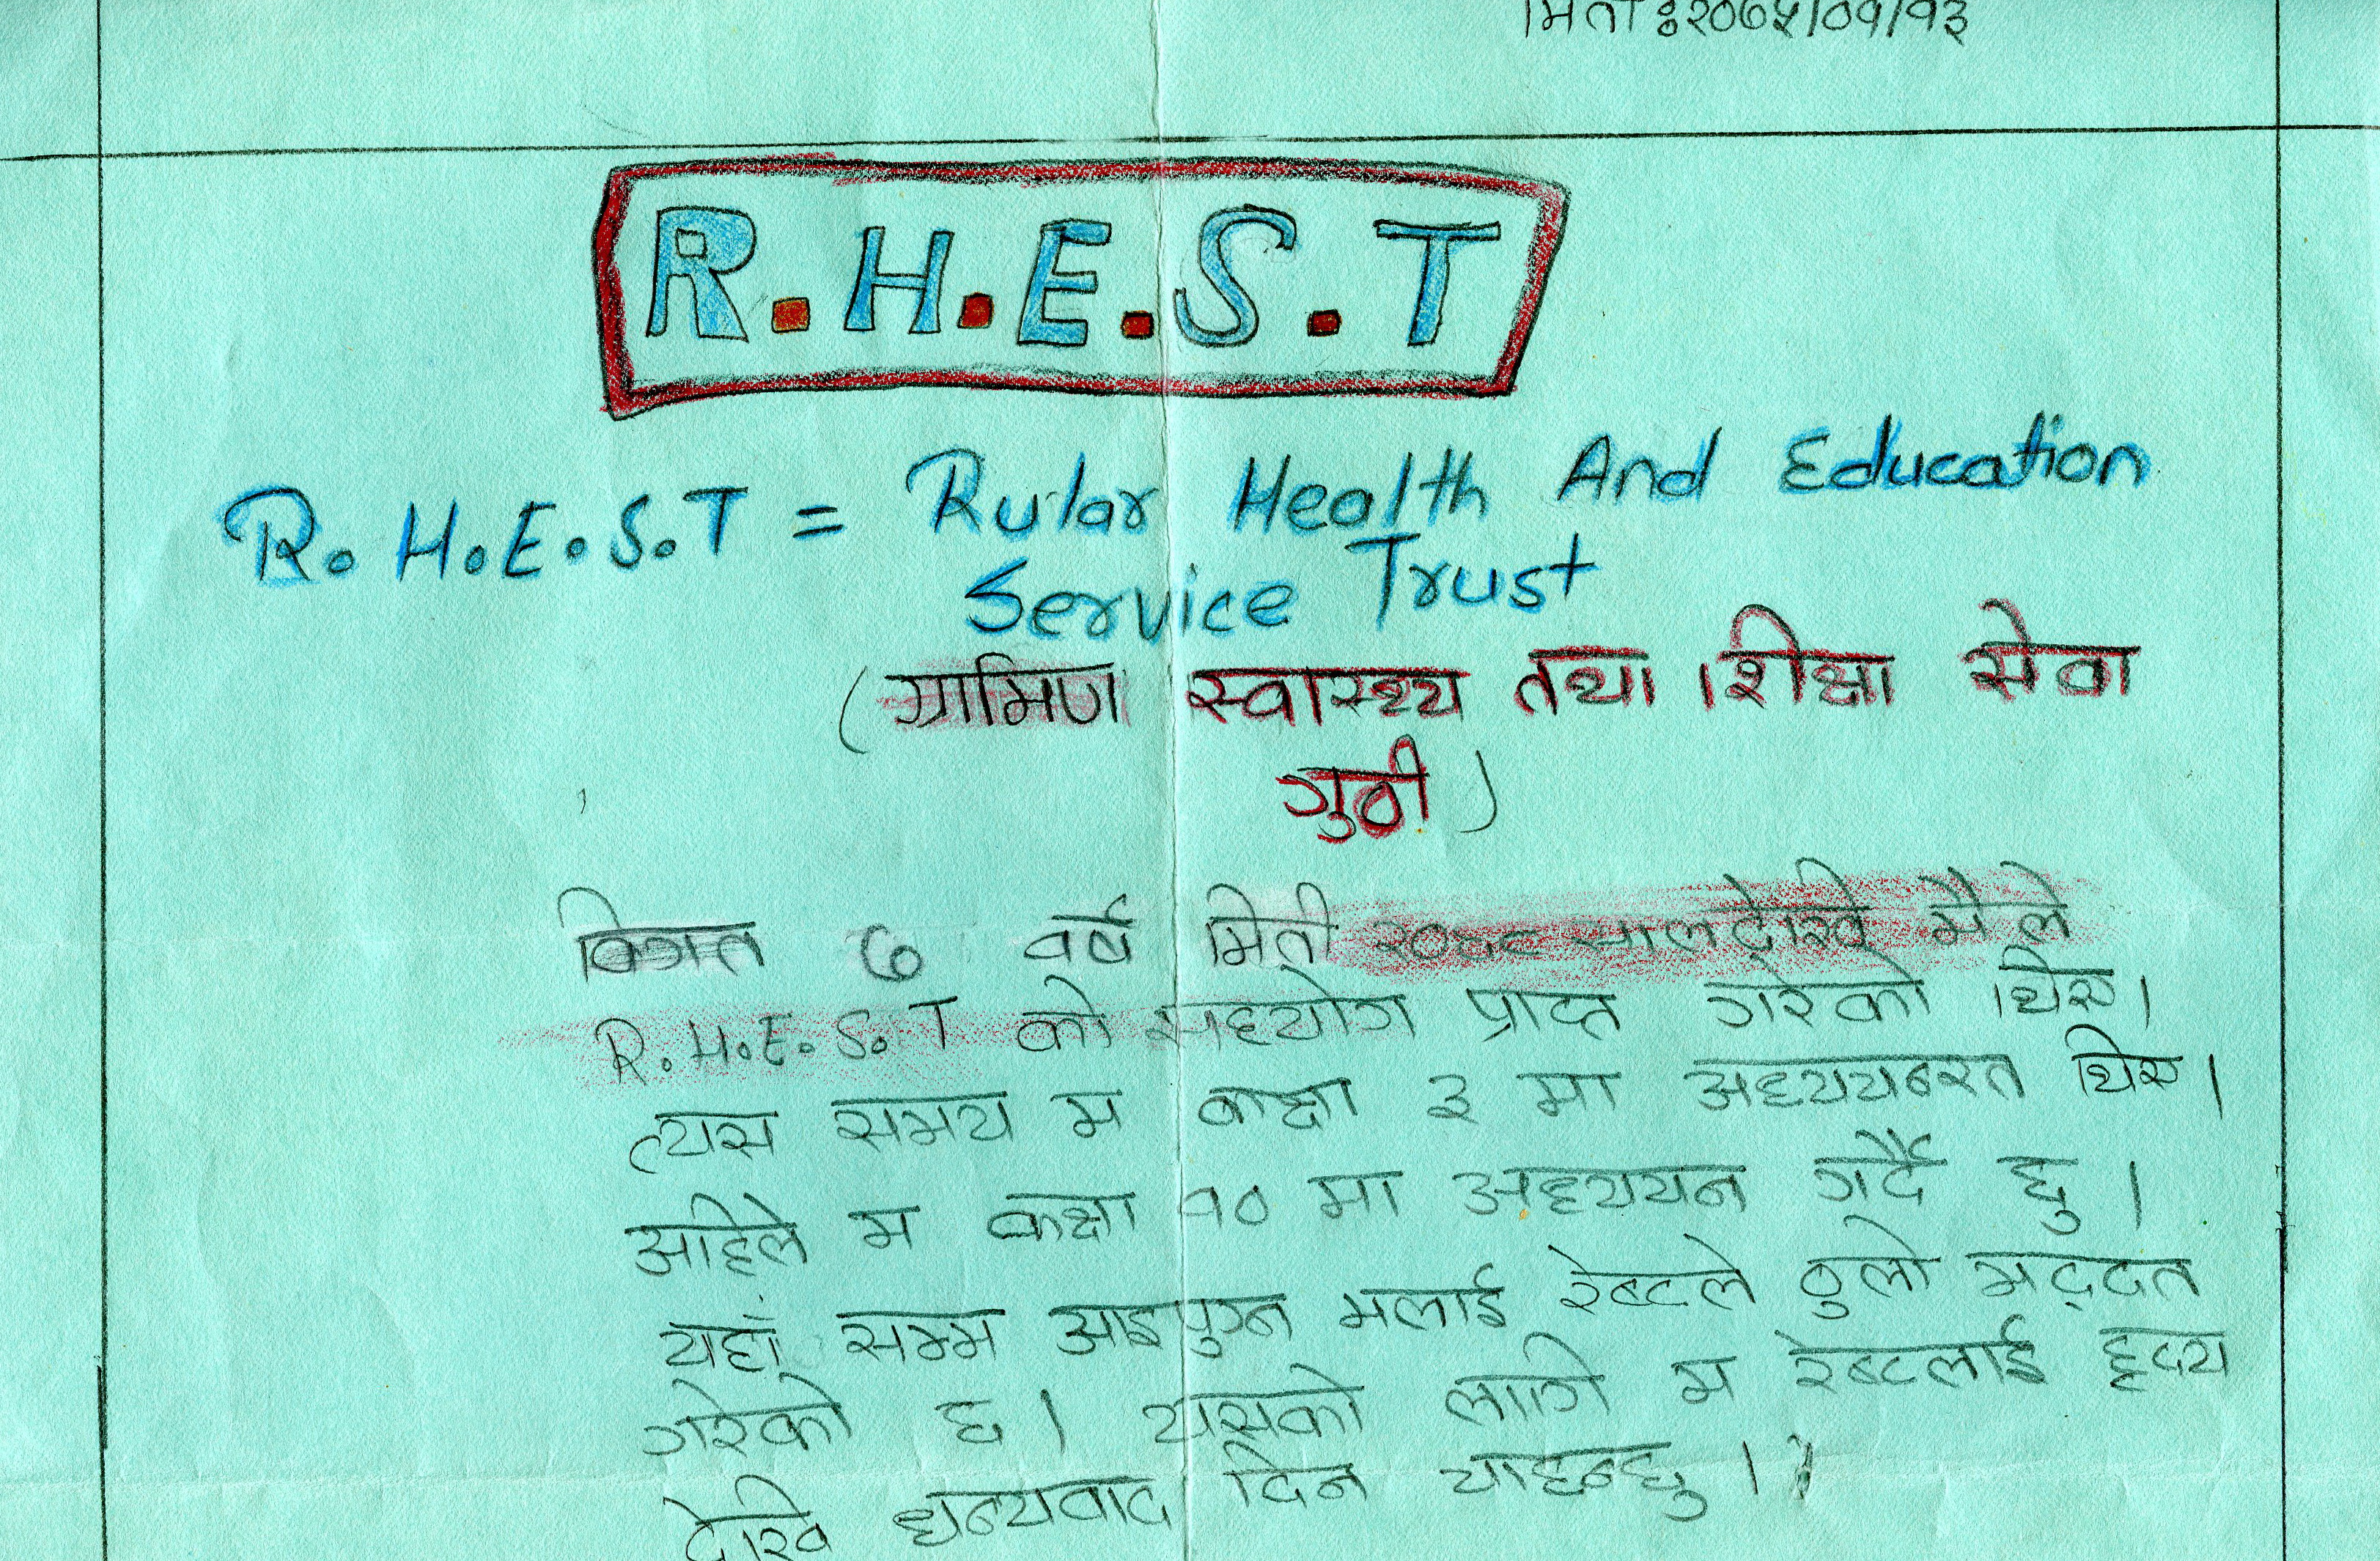 मिति : २०६५/०१/१३
R.H.E.S.T
R.H.E.S.T = Rular Health And Education
Service Trust
(ग्रामिण स्वास्थ्य तथा शिक्षा सेवा
गुठी)
विगत ७ वर्ष मिती २०५८ सालदेखि मैले
R.H.E.S.T को सहयोग प्राप्त गरेको थिए।
त्यस समय म कक्षा ३ मा अध्ययनरत थिए।
अहिले म कक्षा १० मा अध्ययन गर्दै छु।
यहाँ सम्म आइपुग्न मलाई रेष्टले ठुलो मद्दत
गरेको छ। यसको लागि म रेष्टलाई हृदय
देखि धन्यवाद दिन चाहन्छु।